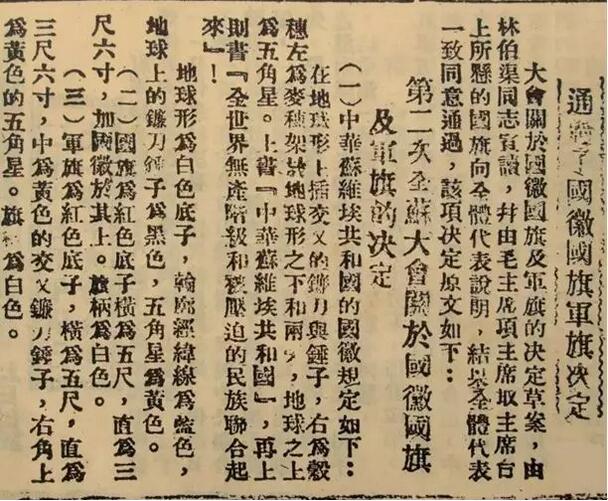 通過了國徽國旗軍旗决定
大會關於國徽國旗及軍旗的决定草案,由
林伯渠同志宣讀,幷由毛主席項主席取主席台
上所縣的國旗向全體代表說明,結果全體代表
一致同意通過,該項决定原文如下:
第二次全蘇大會關於國徽國旗
及軍旗的决定
(一)中華蘇維埃共和國的國徽規定如下:
在地球形上插交叉的鐮刀與錘子,右爲穀
穗左爲麥穗架於地球形之下和兩旁,地球之上
爲五角星。上書『中華蘇維埃共和國』,再上
則書『全世界無產階級和被壓迫的民族聯合起
來』!
地球形爲白色底子,輪廓經緯線爲藍色,
地球上的鐮刀錘子爲黑色,五角星爲黃色。
(二)國旗爲紅色底子橫爲五尺,直爲三
尺六寸,加國徽於其上。旗柄爲白色。
(三)軍旗爲紅色底子,橫爲五尺,直爲
三尺六寸,中爲黃色的交叉鐮刀錘子,右角上
爲黃色的五角星。旗 爲白色。